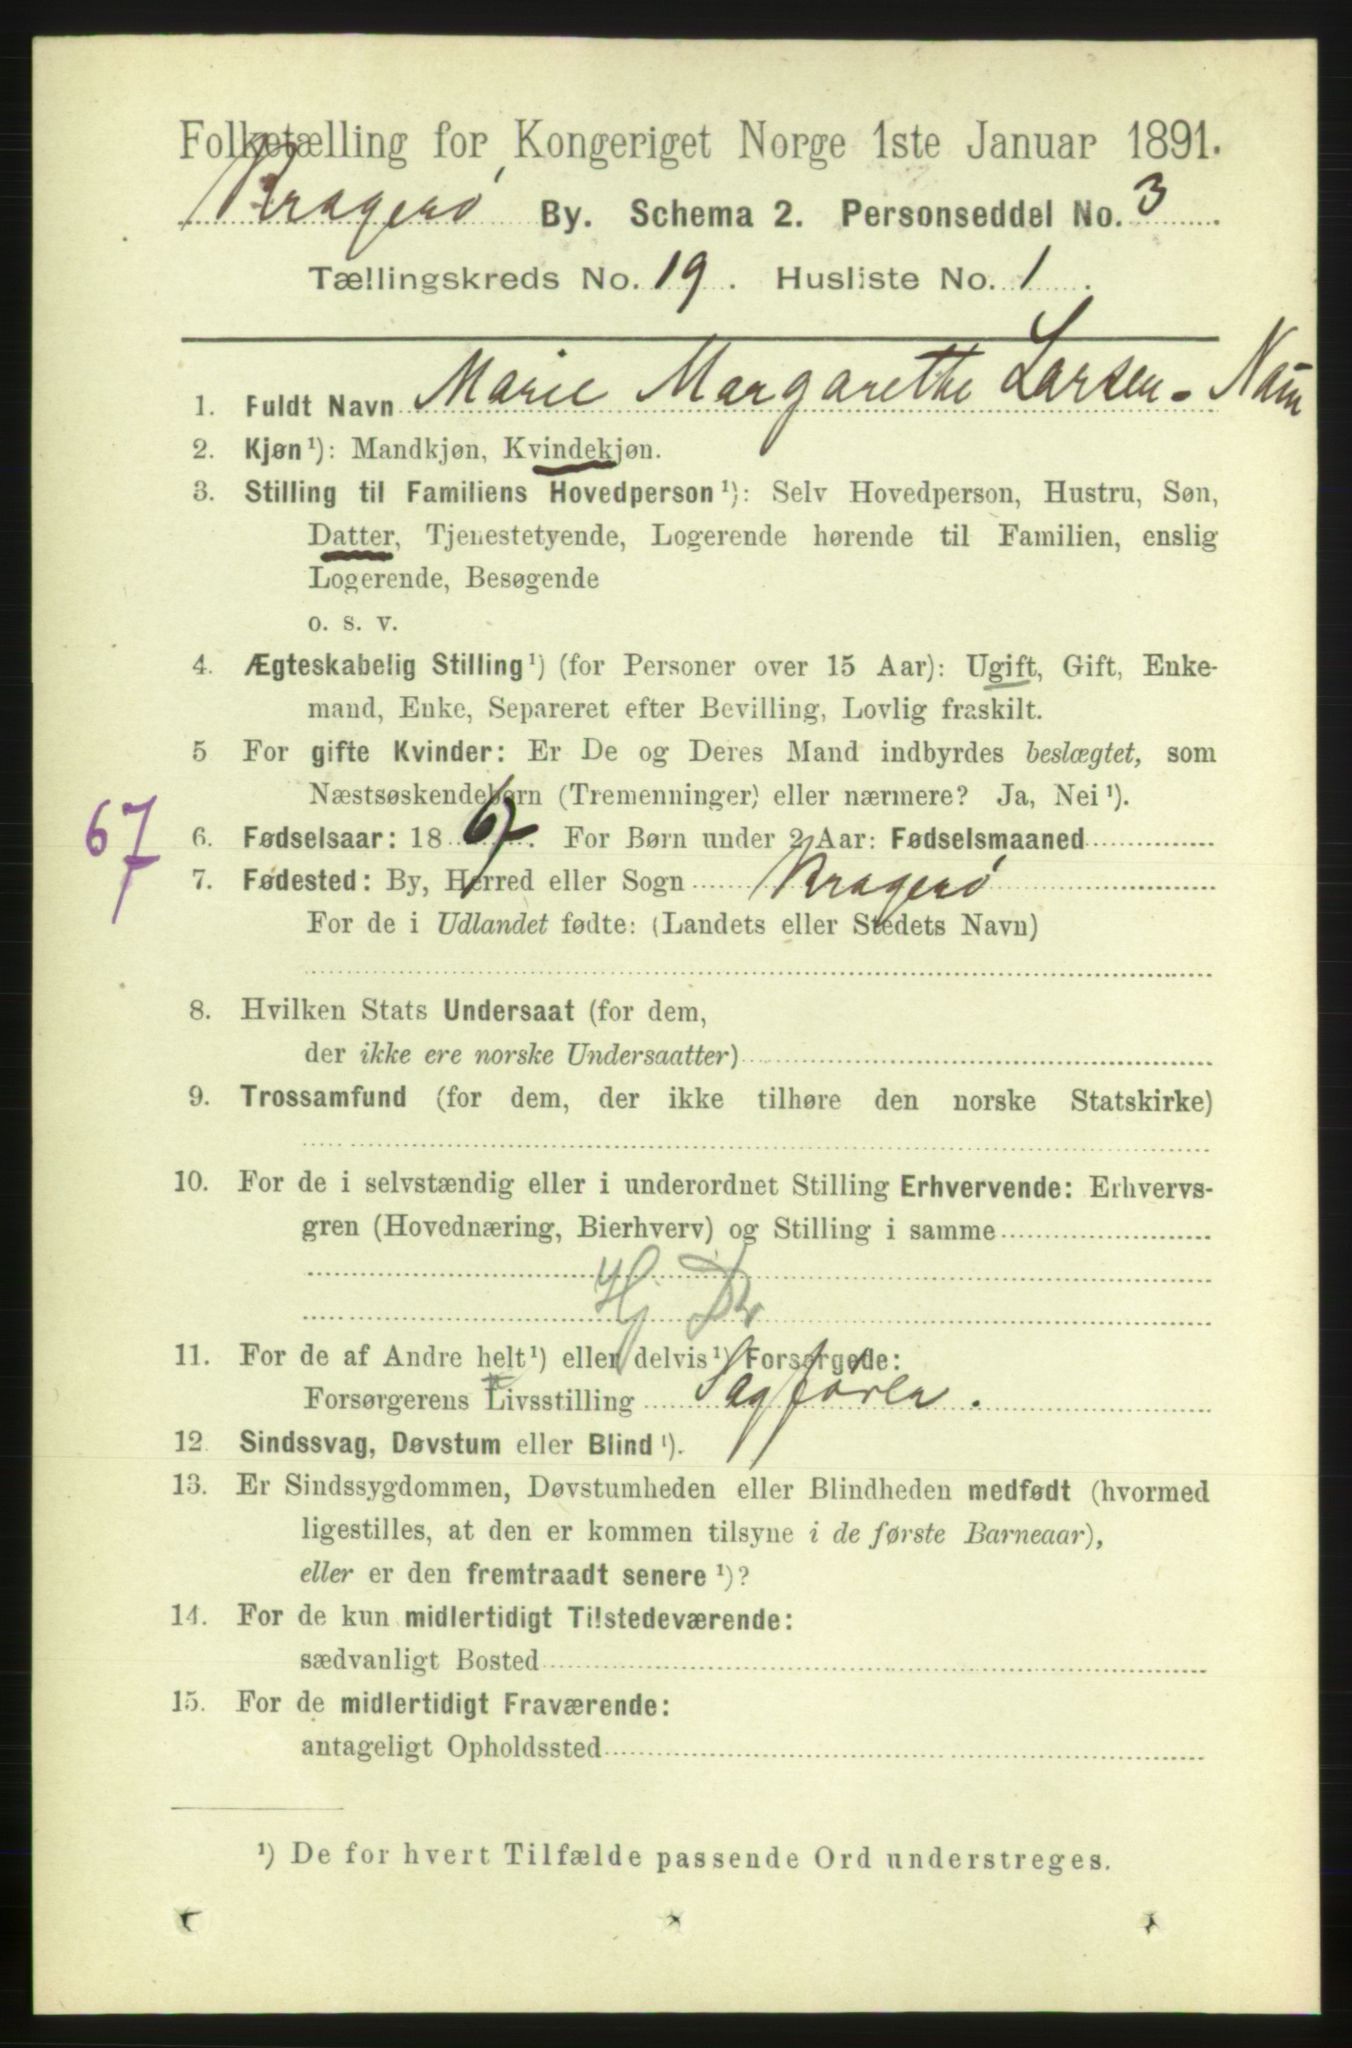 Folketælling for Kongeriget Norge 1ste Januar 1891.
Kragerø By. Schema 2. Personseddel No. 3
Tællingskreds No. 19. Husliste No. 1.
1. Fuldt Navn Marie Margarethe Larsen-
2. Kjøn¹): Mandkjøn, Kvindekjøn.
3. Stilling til Familiens Hovedperson¹): Selv Hovedperson, Hustru, Søn,
Datter, Tjenestetyende, Logerende hørende til Familien, enslig
Logerende, Besøgende
o. s. v.
4. Ægteskabelig Stilling¹) (for Personer over 15 Aar): Ugift, Gift, Enke-
mand, Enke, Separeret efter Bevilling, Lovlig fraskilt.
5 For gifte Kvinder: Er De og Deres Mand indbyrdes beslægtet, som
Næstsøskendebørn (Tremenninger) eller nærmere? Ja, Nei¹).
67
6. Fødselsaar: 1867. For Børn under 2 Aar: Fødselsmaaned
7. Fødested: By, Herred eller Sogn Kragerø
For de i Udlandet fødte: (Landets eller Stedets Navn)
8. Hvilken Stats Undersaat (for dem,
der ikke ere norske Undersaatter)
9. Trossamfund (for dem, der ikke tilhøre den norske Statskirke)
10. For de i selvstændig eller i underordnet Stilling Erhvervende: Erhvervs-
gren (Hovednæring, Bierhverv) og Stilling i samme
Hj Dr
11. For de af Andre helt¹) eller delvis¹) Forsørgede:
Forsørgerens Livsstilling Sagfører.
12. Sindssvag, Døvstum eller Blind¹).
13. Er Sindssygdommen, Døvstumheden eller Blindheden medfødt (hvormed
ligestilles, at den er kommen tilsyne i de første Barneaar),
eller er den fremtraadt senere¹)?
14. For de kun midlertidigt Tilstedeværende:
sædvanligt Bosted
15. For de midlertidigt Fraværende:
antageligt Opholdssted
¹) De for hvert Tilfælde passende Ord understreges.